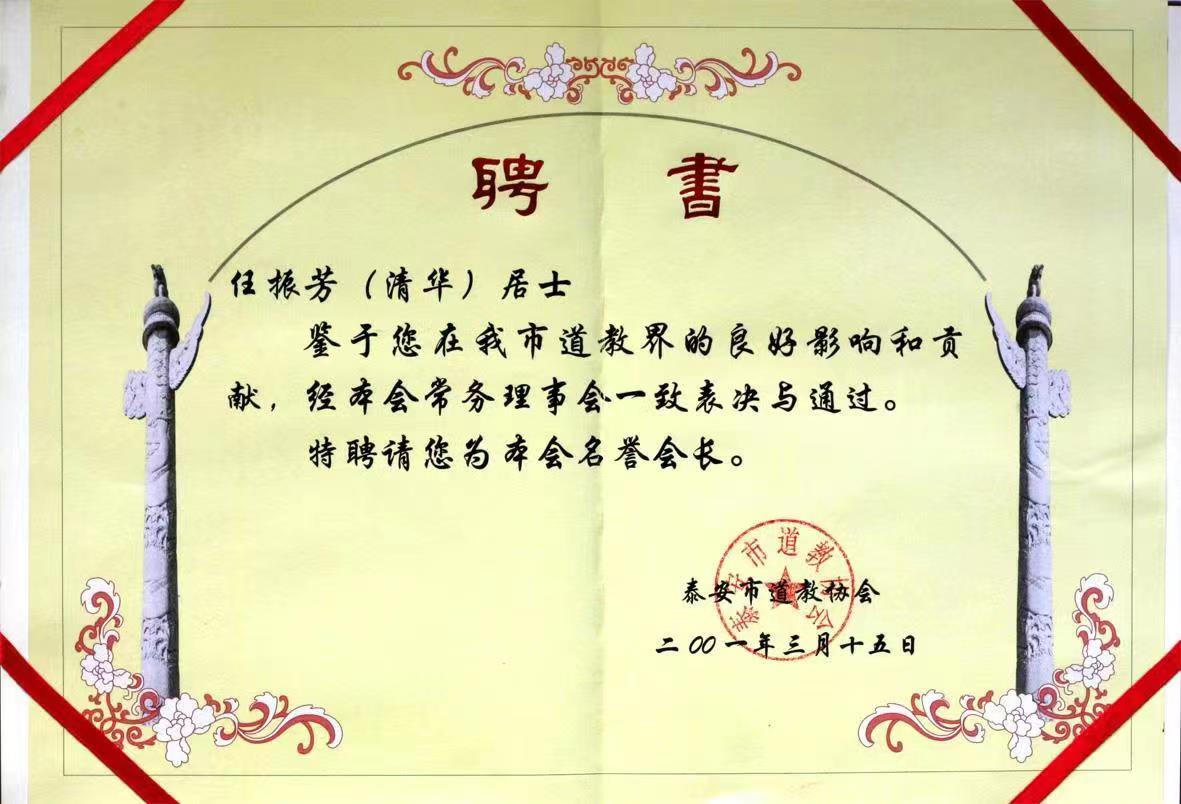 聘 書
任振芳（清华）居士
鉴于您在我市道教界的良好影响和贡
献，经本会常务理事会一致表决与通过。
特聘请您为本会名誉会长。
泰安市道教协会
二00一年三月十五日
泰安市道教协会